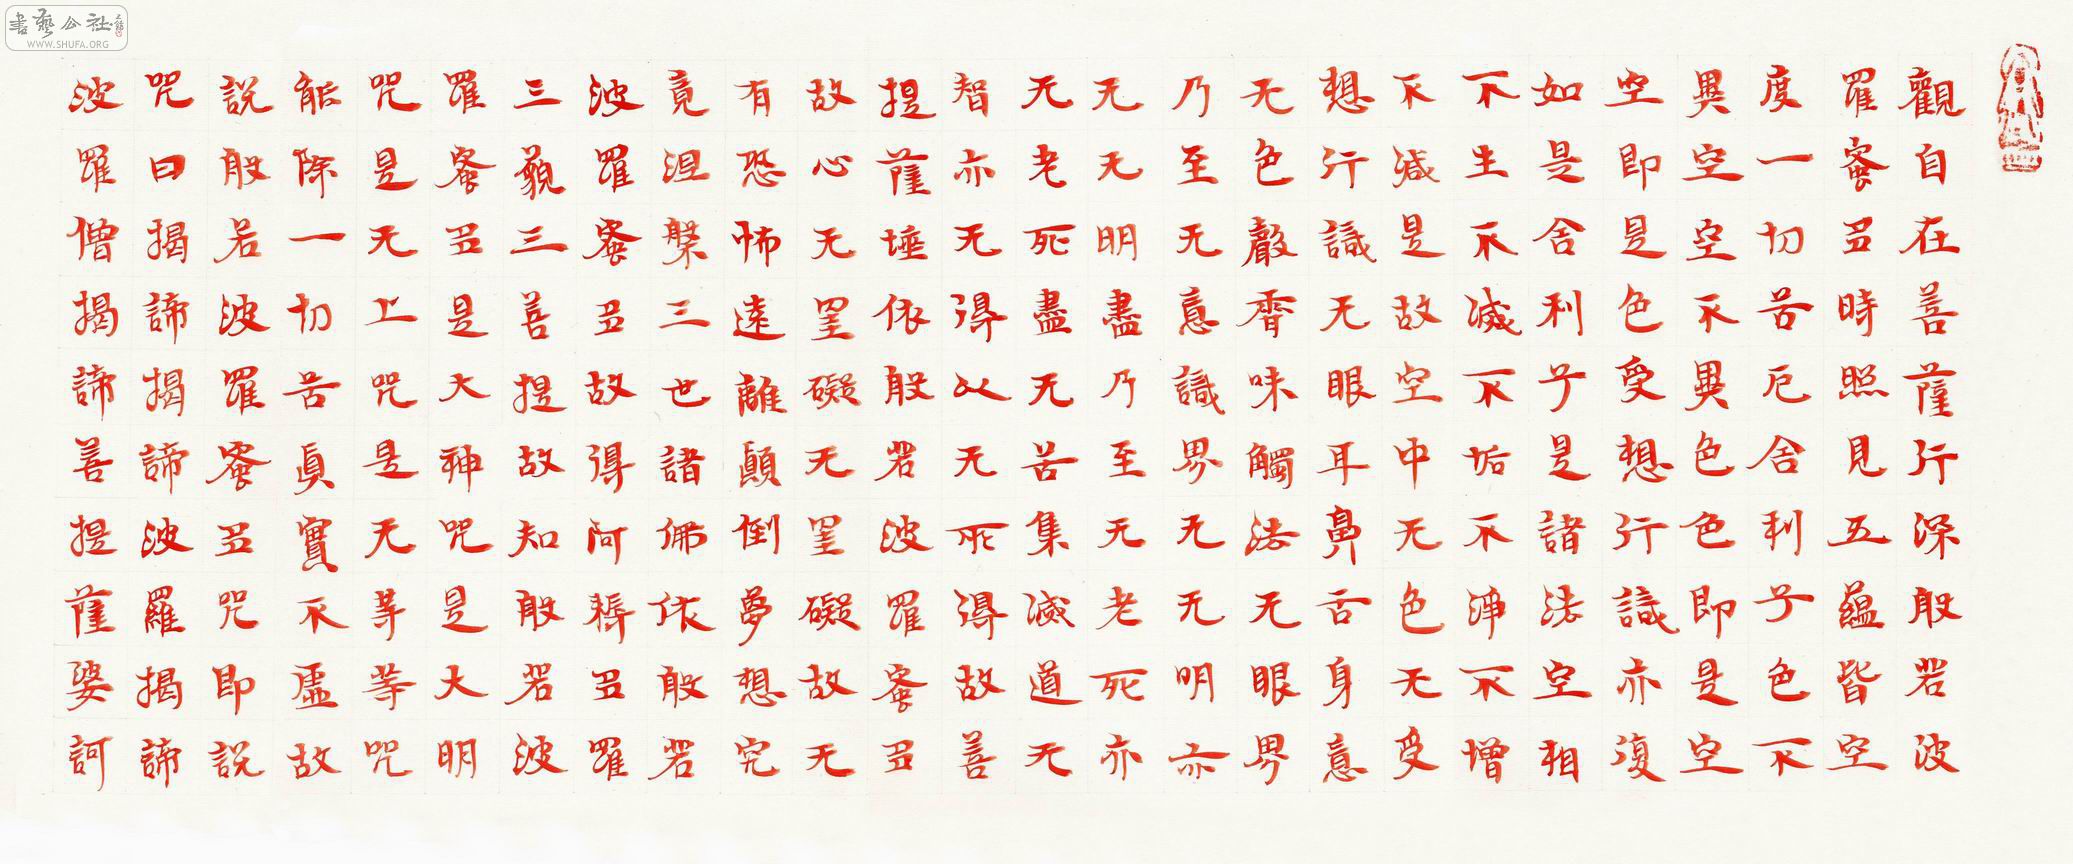 觀自在菩薩行深般若波
羅蜜多時照見五蘊皆空
度一切苦厄舍利子色不
異空空不異色色即是空
空即是色受想行識亦復
如是舍利子是諸法空相
不生不滅不垢不淨不增
不減是故空中无色无受
想行識无眼耳鼻舌身意
无色聲香味觸法无眼界
乃至无意識界无无明亦
无无明盡乃至无老死亦
无老死盡无苦集滅道无
智亦无得以无所得故菩
提薩埵依般若波羅蜜多
故心无罣礙无罣礙故无
有恐怖遠離顛倒夢想究
竟涅槃三世諸佛依般若
波羅蜜多故得阿耨多羅
三藐三菩提故知般若波
羅蜜多是大神咒是大明
咒是无上咒是无等等咒
能除一切苦真實不虛故
說般若波羅蜜多咒即說
咒曰揭諦揭諦波羅揭諦
波羅僧揭諦菩提薩婆訶
書藝公社
WWW.SHUFA.ORG